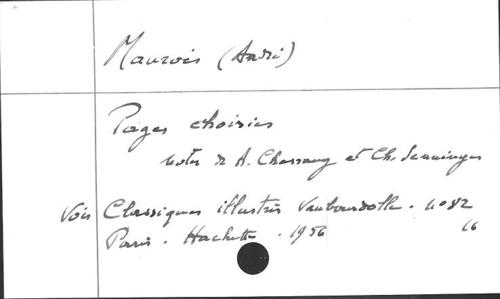 Maurois (André)
Pages choisies
notes de A. Chassang et Ch. Senninger
Voir Classiques illustrés Vaubourdolle. no 82
Paris. Hachette. 1956 16